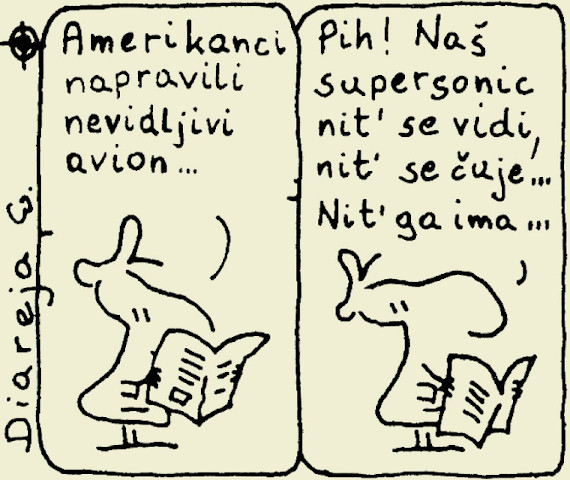 Amerikanci
napravili
nevidljivi
avion...
Pih! Naš
supersonic
nit' se vidi,
nit' se čuje...
Nit' ga ima...
Diareja 3.